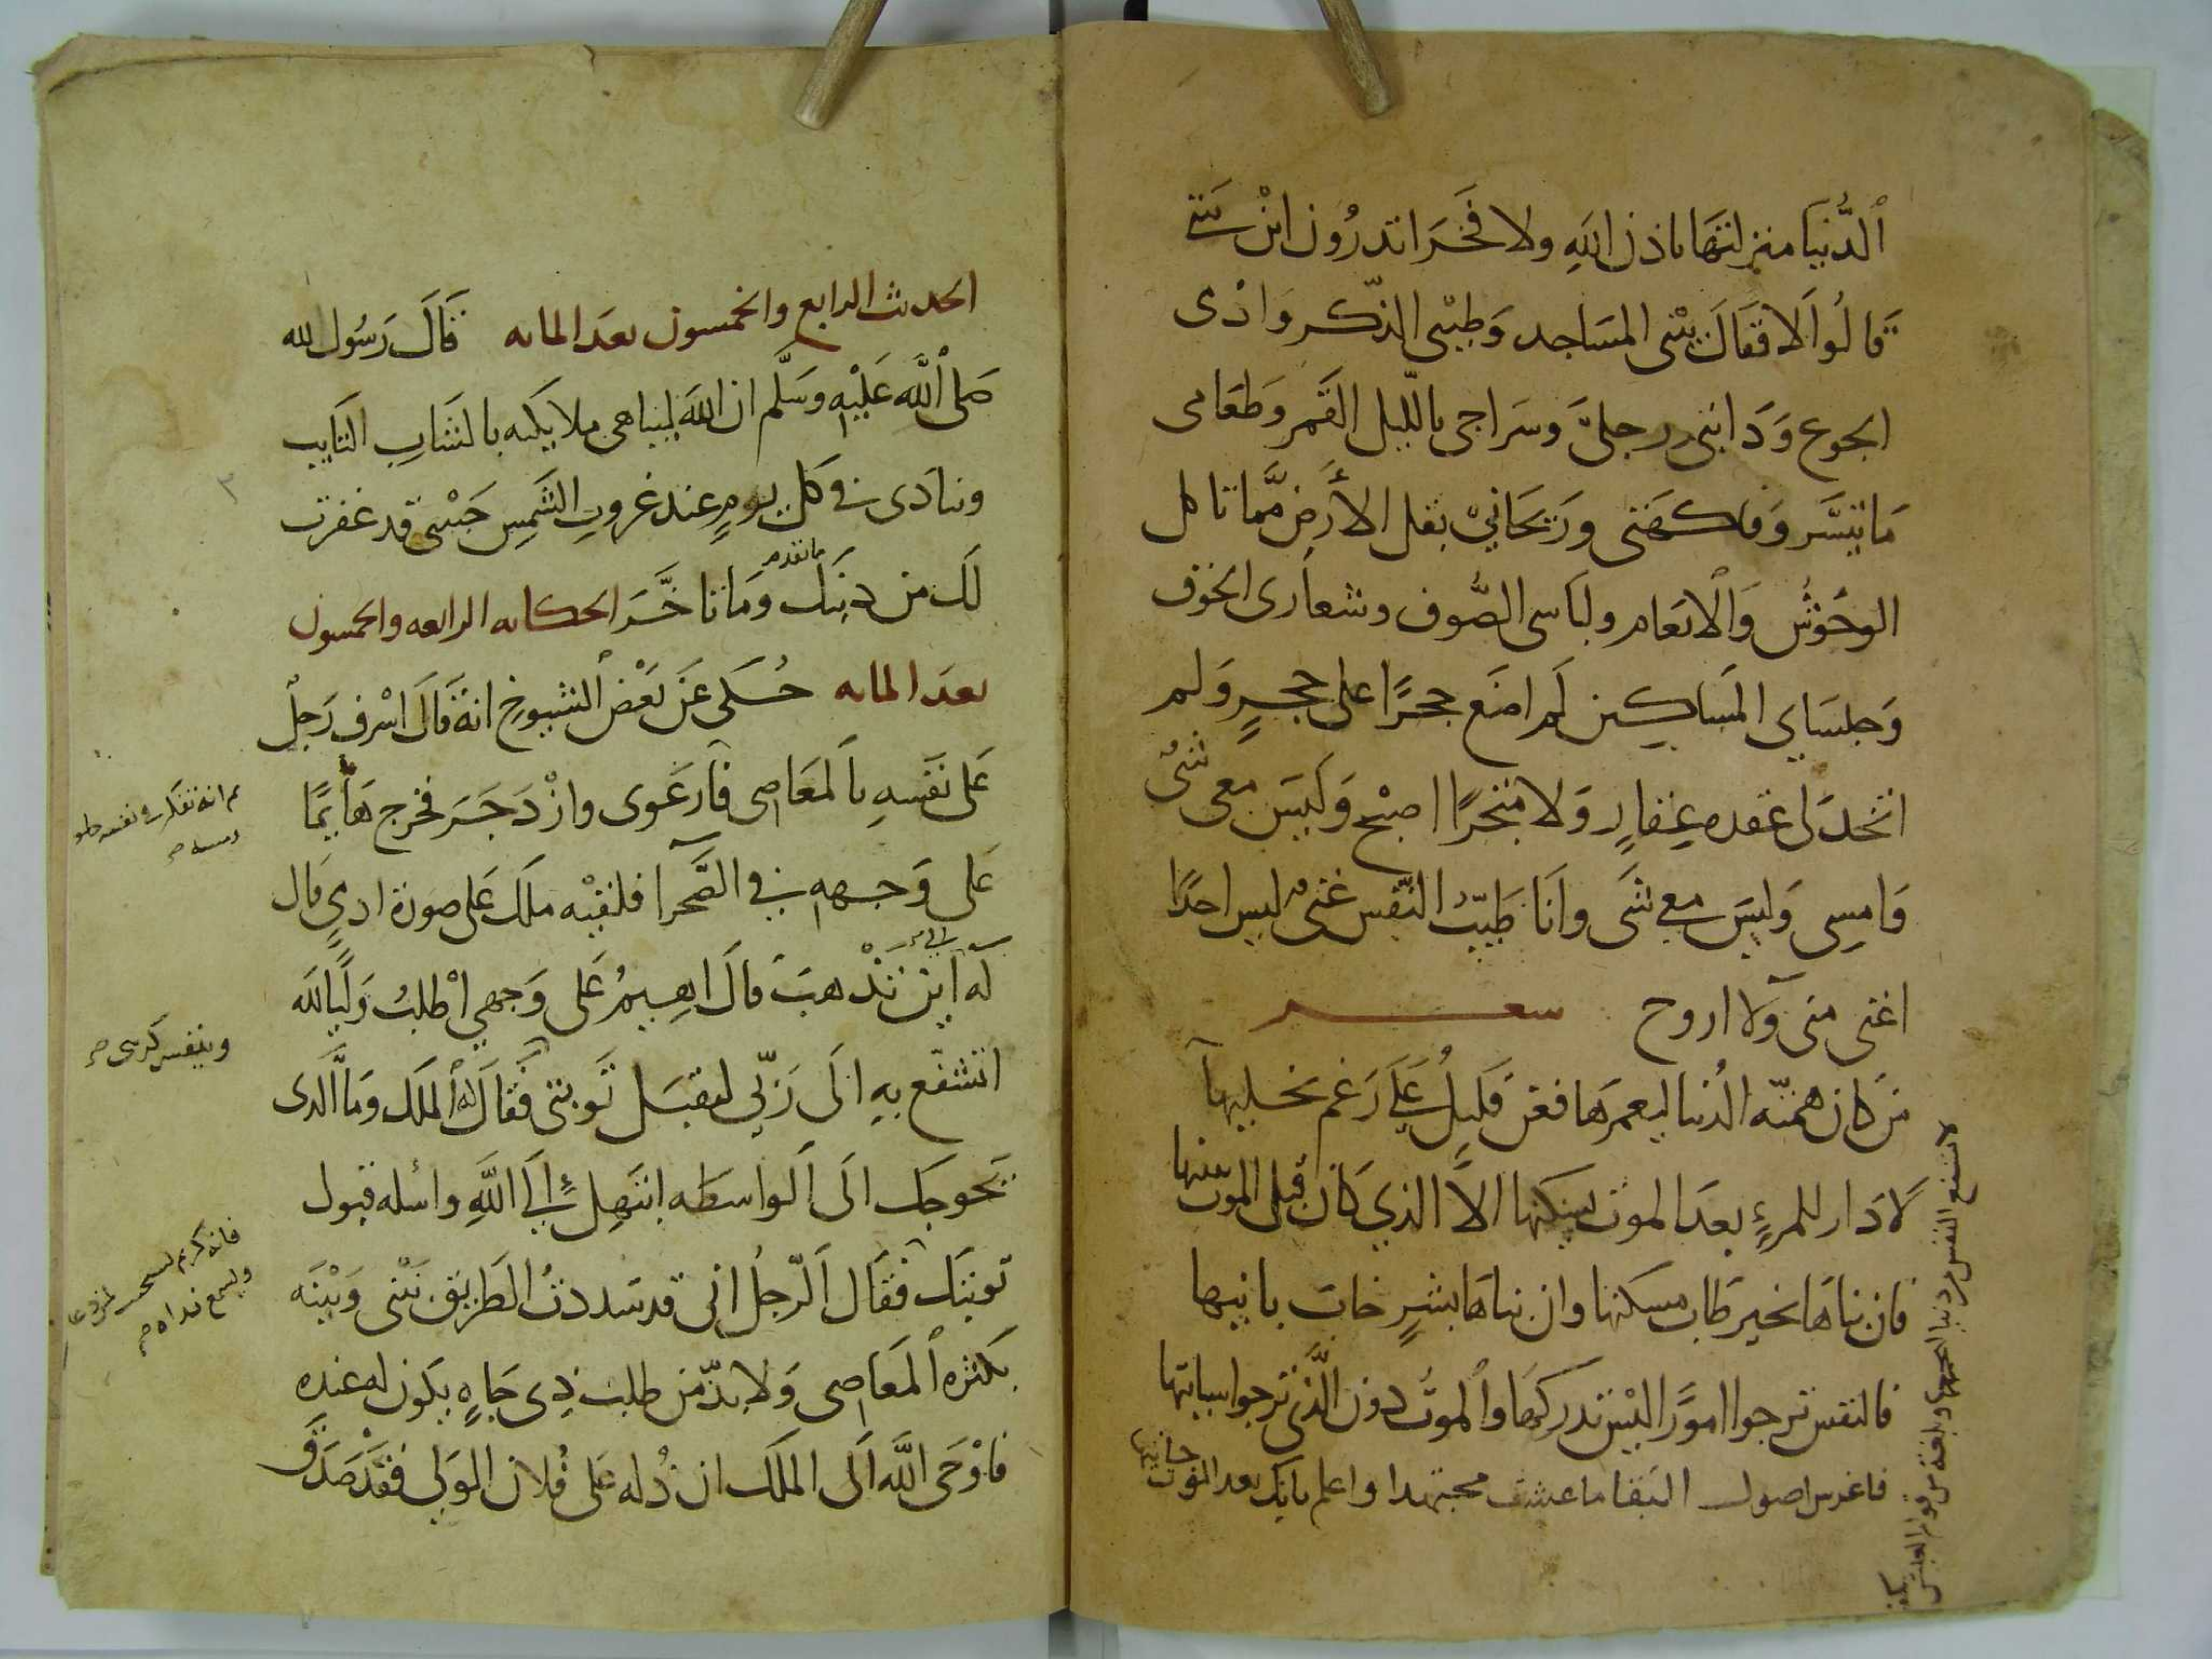 الدُّنيا منزلتها باذن الله ولا فخر اتدرون اين بيتي
قالُوا لا فقال بيتى المساجد وطيبى الذكر وادى
الجوع ودابتى رجلىّ وسراجى بالليل القمر وطعامى
ما تيسّر وفاكهتى وريحانى بقل الأرض ممّا تاكل
الوحوش والانعام ولباسى الصُّوف وشعارى الخوف
وجلساى المساكين لم اضع حجرًا على حجرٍ ولم
اتخذ لى عقده عقارٍ ولا متجرًا اصبح وليس معى شىٌ
وامسى وليس معى شى وانا طيّب النّفس غنى ليس احدًا
اغنى منى ولا اروح
شعر
من كان همته الدُنيا ليعمرها فعن قليل على رغم يخليها
لا دار للمرءِ بعد الموت يسكنها الا الذي كان قبل الموت يبنيها
فان بناها بخير طاب مسكنها وان بناها بشرٍ خاب بانيها
فالنفس ترجوا امورًا ليس تدركها والموت دون الذى ترجوا
فاغرس اصول التقا ما عشت مجتهدا واعلم بانك بعد الموت جانيها
الحديث الرابع والخمسون بعد المايه قال رسُول الله
صلى الله عليه وسلّم ان الله ليباهى ملايكته بالشاب التايب
وينادى فى كل يومٍ عند غروبِ الشمس قد غفرت
لك من ذنبك ما تقدم وما تاخّر الحكايه الرابعه والخمسون
بعد المايه حُكى عن بعض الشيوخ انه قال اسرف رجل
على نفسه بالمعاصى فارعوى وازدجر فخرج هايمًا
على وجهه في الصحرا فلقيه ملك على صورة ادمى قال
له الى اين تذهب قال اهيم على وجهي اطلب وليًا لله
اتشفع به الى ربّي ليقبل توبتى فقال له الملك وما الذى
يحوجك الى الواسطه ابتهل الى اللهِ واسله قبول
توبتك فقال الرّجل انى قد سددت الطريق بينى وبينه
بكثره المعاصى ولا بدّ من طلب ذى جاهٍ يكون له عنده
فاوحى الله الى الملك ان دُله على فُلان الولى فقد صدق
ثم انه تفكر فى نفسه
فانه كريم
ويسمع نداه